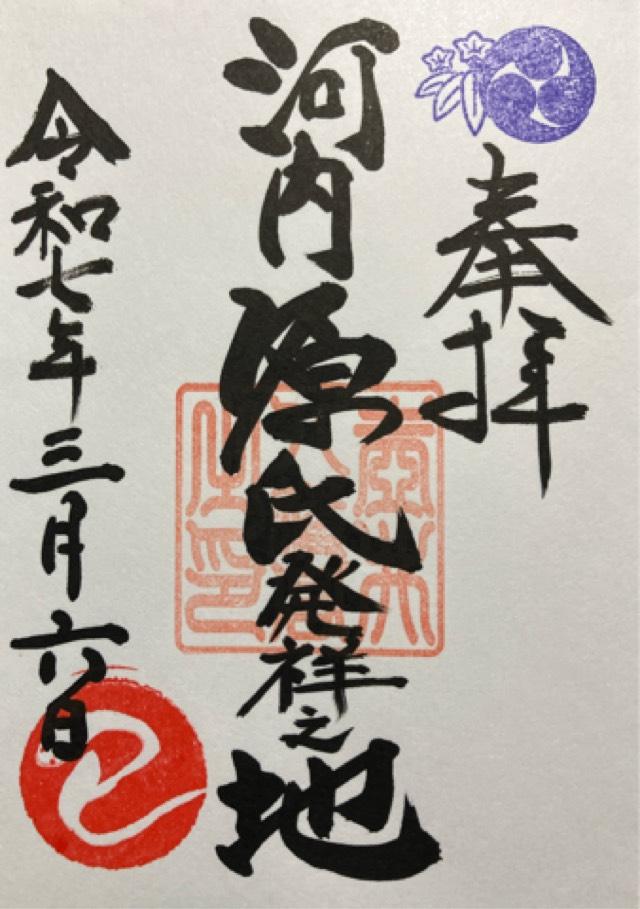 奉拝
河内源氏発祥之地
令和七年三月六日
巳